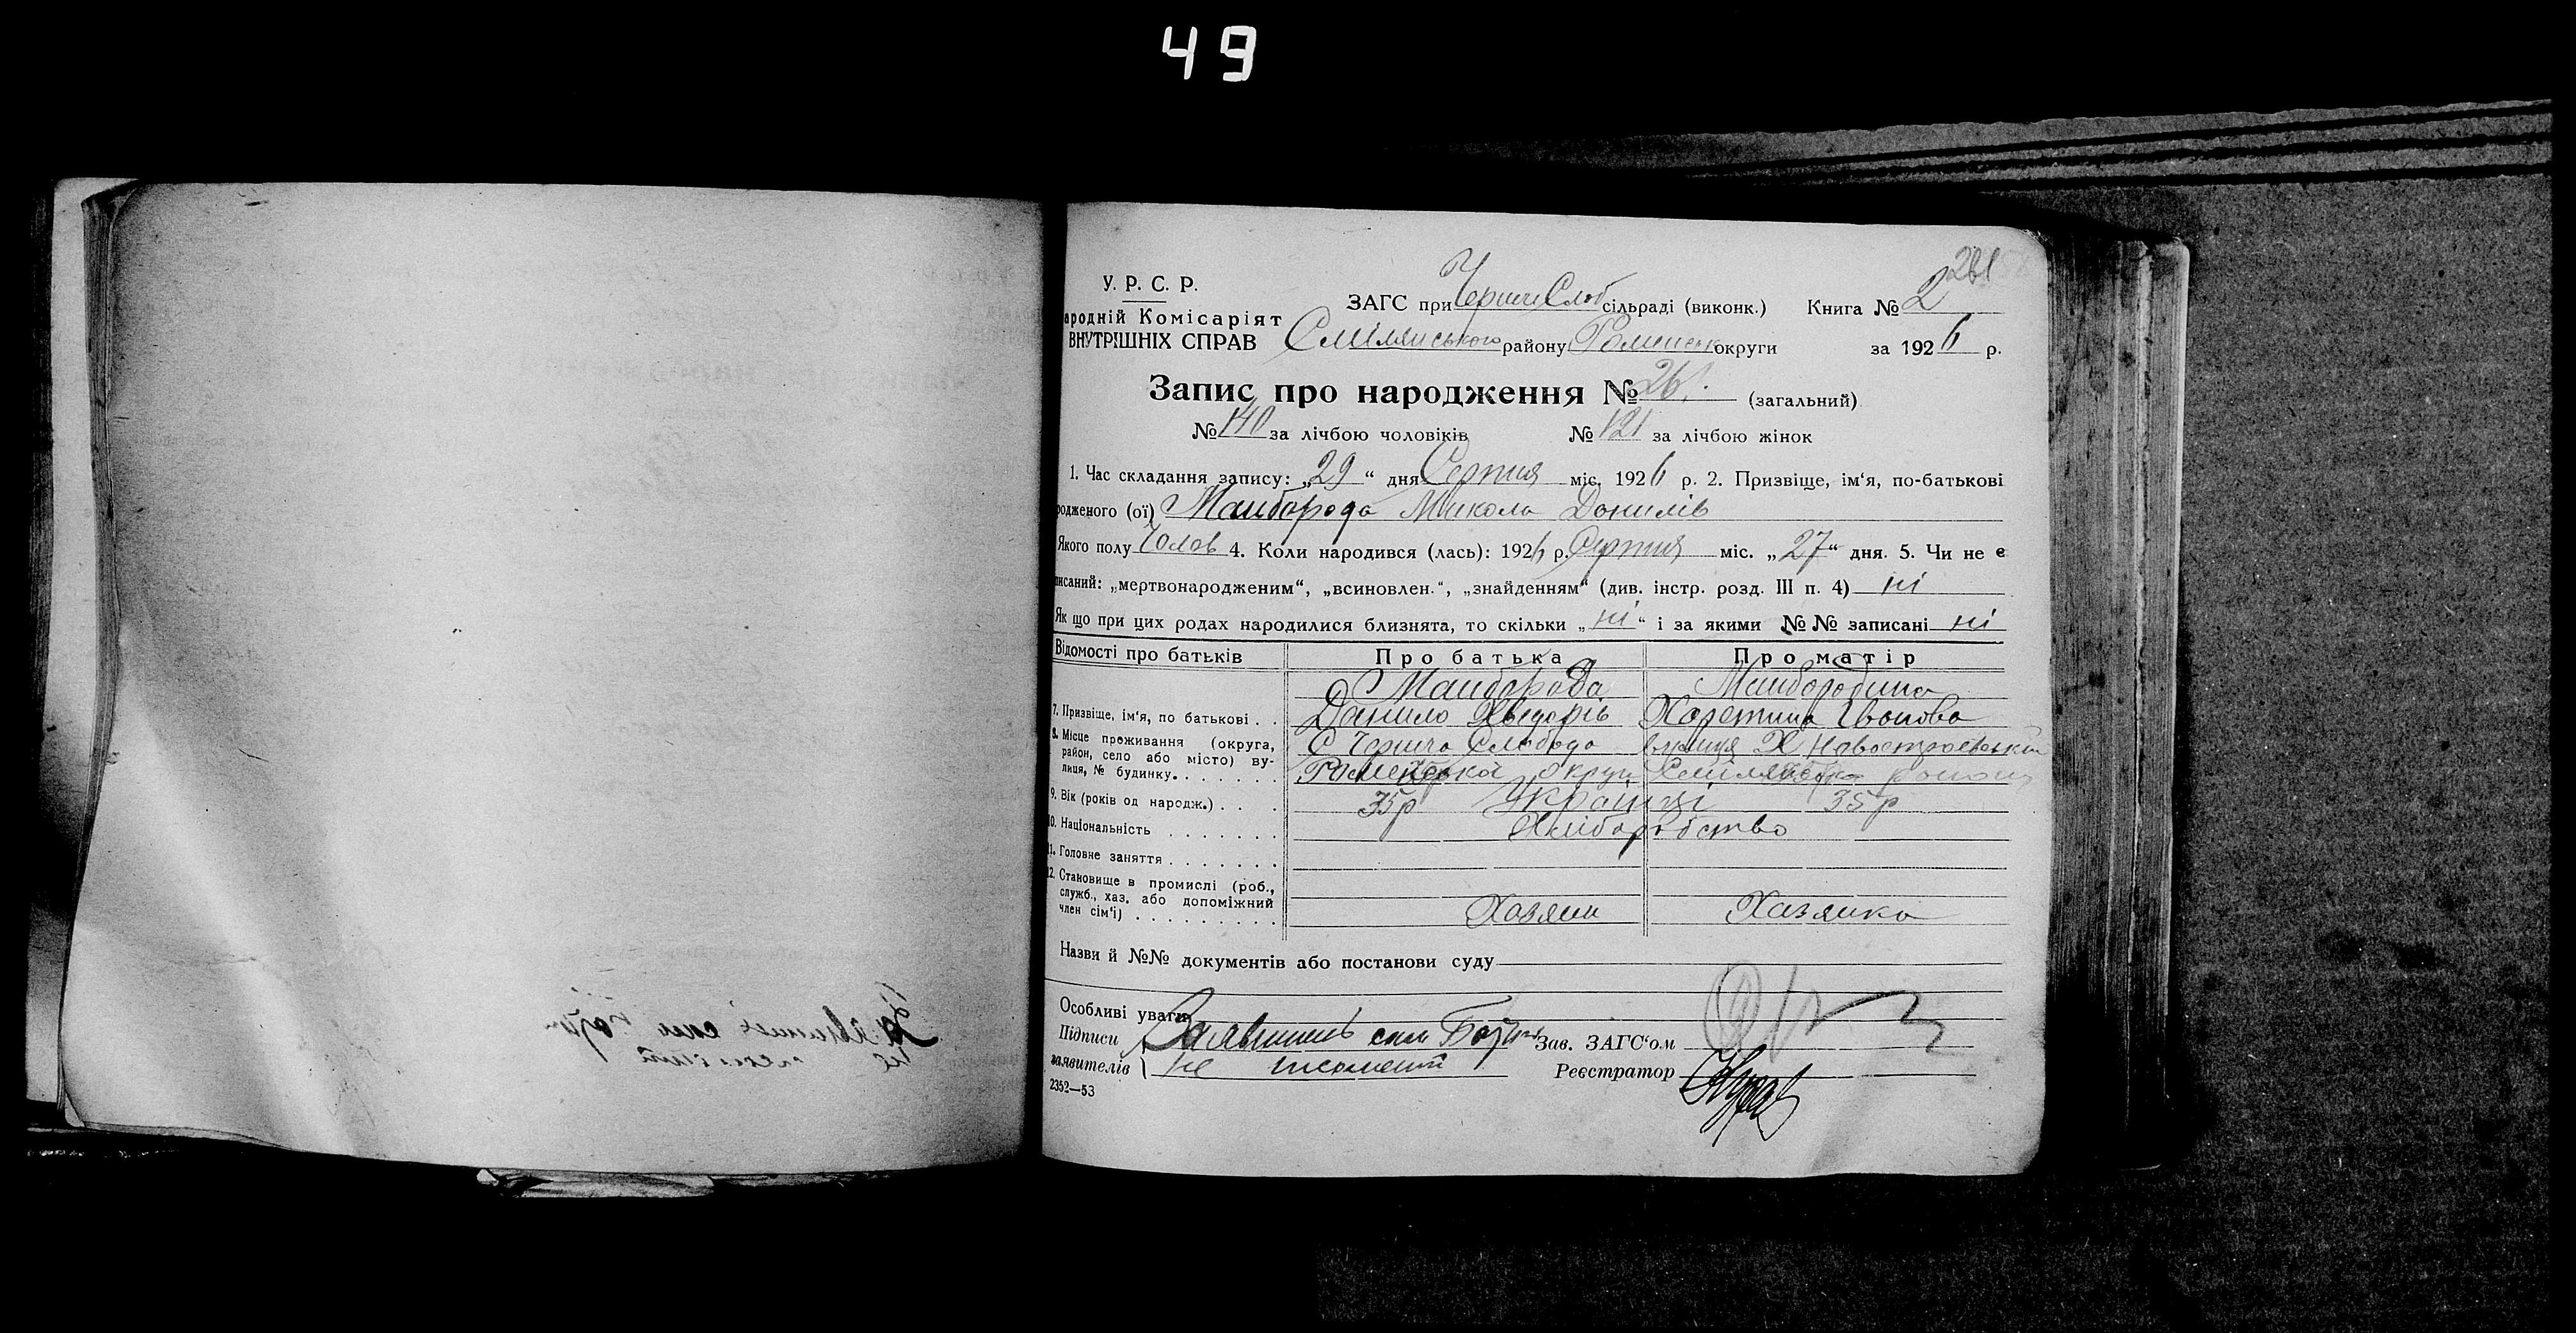 49
261
У. Р. С. Р.
ЗАГС при Чернеч Слоб сільраді (виконк.) Книга № 2
ародній Комісаріят
ВНУТРІШНІХ СПРАВ Смілянського району Роменськ округи за 1926 р.
Запис про народження № 261. (загальний)
№ 140 за лічбою чоловіків № 121 за лічбою жінок
1. Час складання запису: „29“ дня Серпня міс. 1926 р. 2. Призвіще, ім'я, по-батькові
родженого (ої) Майборода Микола Данилів
Якого полу Чолов 4. Коли народився (лась): 1926 р. Серпня міс. „27“ дня. 5. Чи не є
писаний: „мертвонародженим“, „всиновлен.“, „знайденням“ (див. інстр. розд. III п. 4) ні
Як що при цих родах народилися близнята, то скільки „ні“ і за якими №№ записані ні
Відомості про батьків Про батька Про матір
Майборода Майбородина
7. Призвіще, ім'я, по батькові . . Данило Хведорів Харетина Іванова
8. Місце проживання (округа, район, село або місто) вулиця, № будинку. С Чернеча Слобода вулиця
Роменської округи Смілянськ району
9. Вік (років од народж.) . . . 35р Українці 35р
10. Національність Хліборобство
11. Головне заняття
12. Становище в промислі (роб.,
служб., хаз. або допоміжний
член сім'ї) Хазяин Хазяйка
Назви й №№ документів або постанови суду
Особливі уваги
Підписи Заявитель сам Зав. ЗАГС'ом
заявителів не Реєстратор
2352—53